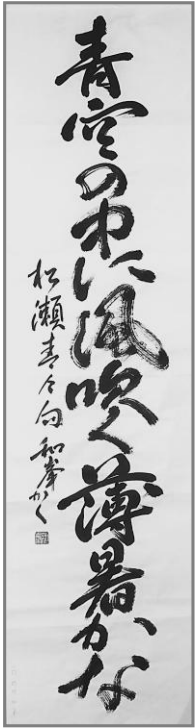 青空の中に風吹く薄暑かな
松瀬青々句 和峯かく